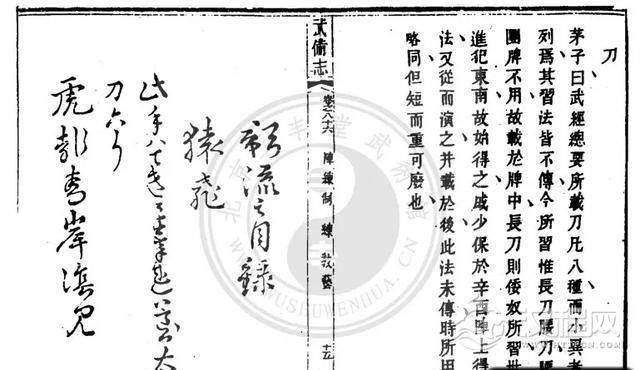 刀
茅子曰武經總要所載刀凡八種而小異者
列焉其習法皆不傳今所習惟長刀腰刀
團牌不用故載於牌中長刀則倭奴所習世
進犯東南故始得之戚少保於辛酉陣上得
法又從而演之并載於後此法未傳時所用
略同但短而重可廢也
武備志 卷八十六 陣練制 練 教藝 十五
影流之目錄
猿飛
此手ハ
虎飛青岸陰見
WUSHUWENHUA.CN